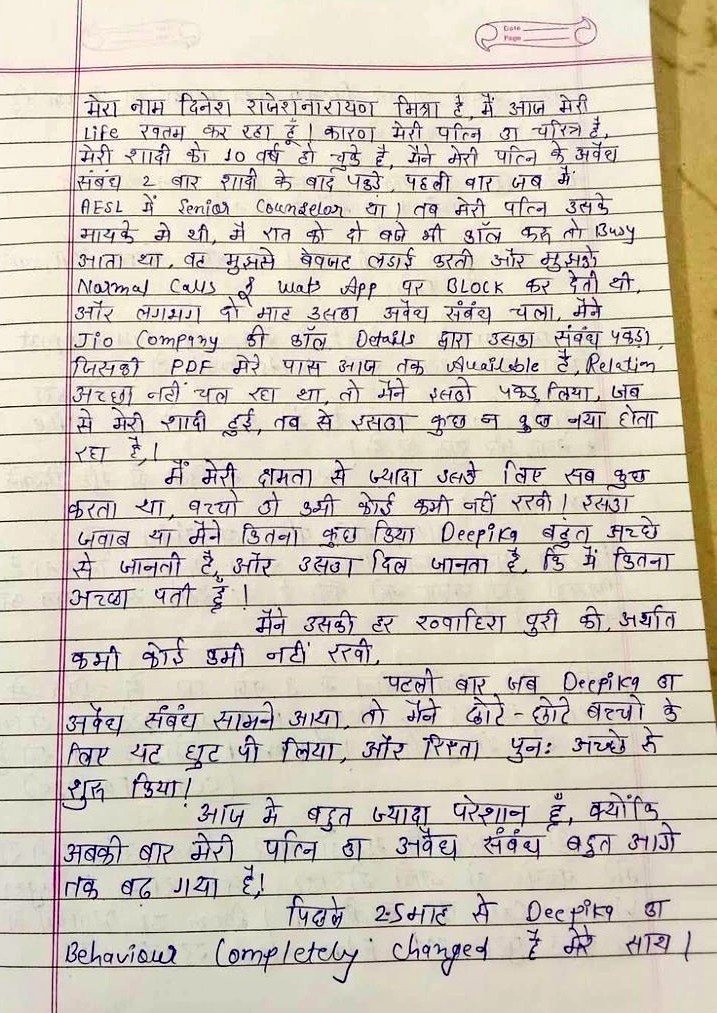 Date
Page
मेरा नाम दिनेश राजेशनारायण मिश्रा है, मैं आज मेरी
Life खतम कर रहा हूँ। कारण मेरी पत्नि का चरित्र है,
मेरी शादी को 10 वर्ष हो चुके है, मैने मेरी पत्नि के अवैध
संबंध 2 बार शादी के बाद पकडे, पहली बार जब मैं
AESL में Senior Counselor था। तब मेरी पत्नि उसके
मायके मे थी, मै रात को दो बजे भी कॉल करू तो Busy
आता था, वह मुझसे बेवजह लडाई करती और मुझको
Normal Calls & Wats App पर BLOCK कर देती थी,
और लगभग दो माह उसका अवैध संबंध चला, मैने
Jio Company की कॉल Details द्वारा उसका संबंध पकडा,
जिसकी PDF मेरे पास आज तक Available है, Relation
अच्छा नहीं चल रहा था, तो मैने इसको पकड लिया, जब
से मेरी शादी हुई, तब से इसका कुछ न कुछ नया होता
रहा है,।
मैं मेरी क्षमता से ज्यादा उसके लिए सब कुछ
करता था, बच्चो को कभी कोई कमी नहीं रखी। इसका
जवाब या मैने कितना कुछ किया Deepika बहुत अच्छे
से जानती है, और उसका दिल जानता है, कि मैं कितना
अच्छा पती हूँ!
मैने उसकी हर ख्वाहिश पुरी की, अर्थात
कभी कोई कमी नहीं रखी,
पहली बार जब Deepika का
अवैध संबंध सामने आया, तो मैने छोटे-छोटे बच्चो के
लिए यह घुट पी लिया, और रिस्ता पुनः अच्छे से
शुरू किया!
आज मे बहुत ज्यादा परेशान हूँ, क्योंकि
अबकी बार मेरी पत्नि का अवैध संबंध बहुत आगे
तक बढ़ गया है,!
पिछले 2-5 माह से Deepika का
Behaviour Completely changed है मेरे साथ।